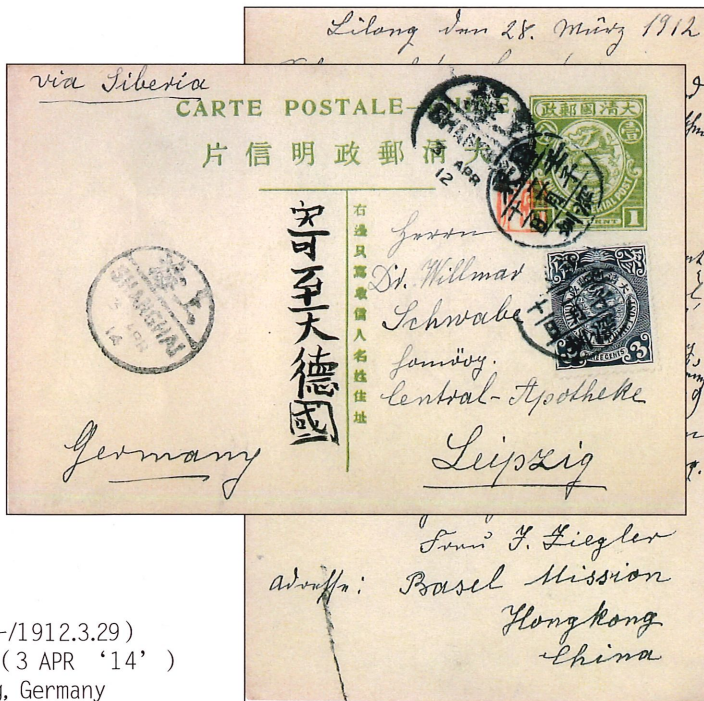 Lilong den 28. März 1912
via Siberia
CARTE POSTALE—
大清國郵政
壹
1
片信明政郵清大
SHANGHAI
3 APR 12
右邊只寫收信人名姓住址
寄至大德國
Herrn
Dr. Willmar
Schwabe
homöop.
Central-Apotheke
Leipzig
上海
SHANGHAI
3 APR 14
Germany
3
Frau J. Ziegler
Adresse: Basel Mission
Hongkong
China
-/1912.3.29)
(3 APR ‘14’ )
g, Germany